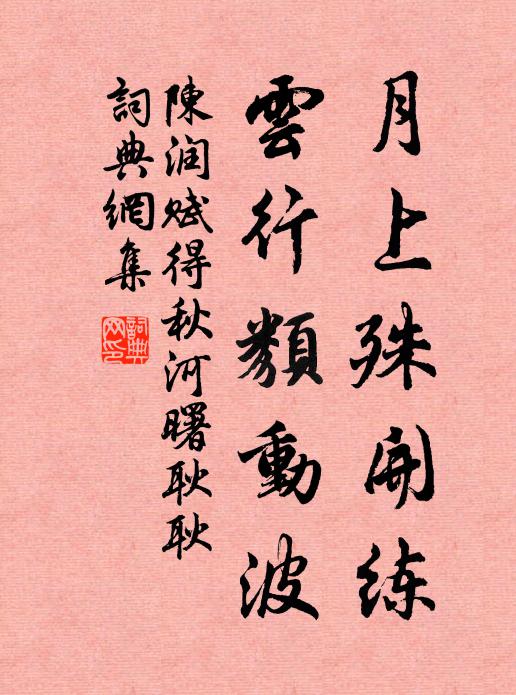 月上殊開练
雲行類動波
陳润赋得秋河曙耿耿
詞典網集
詞典网印